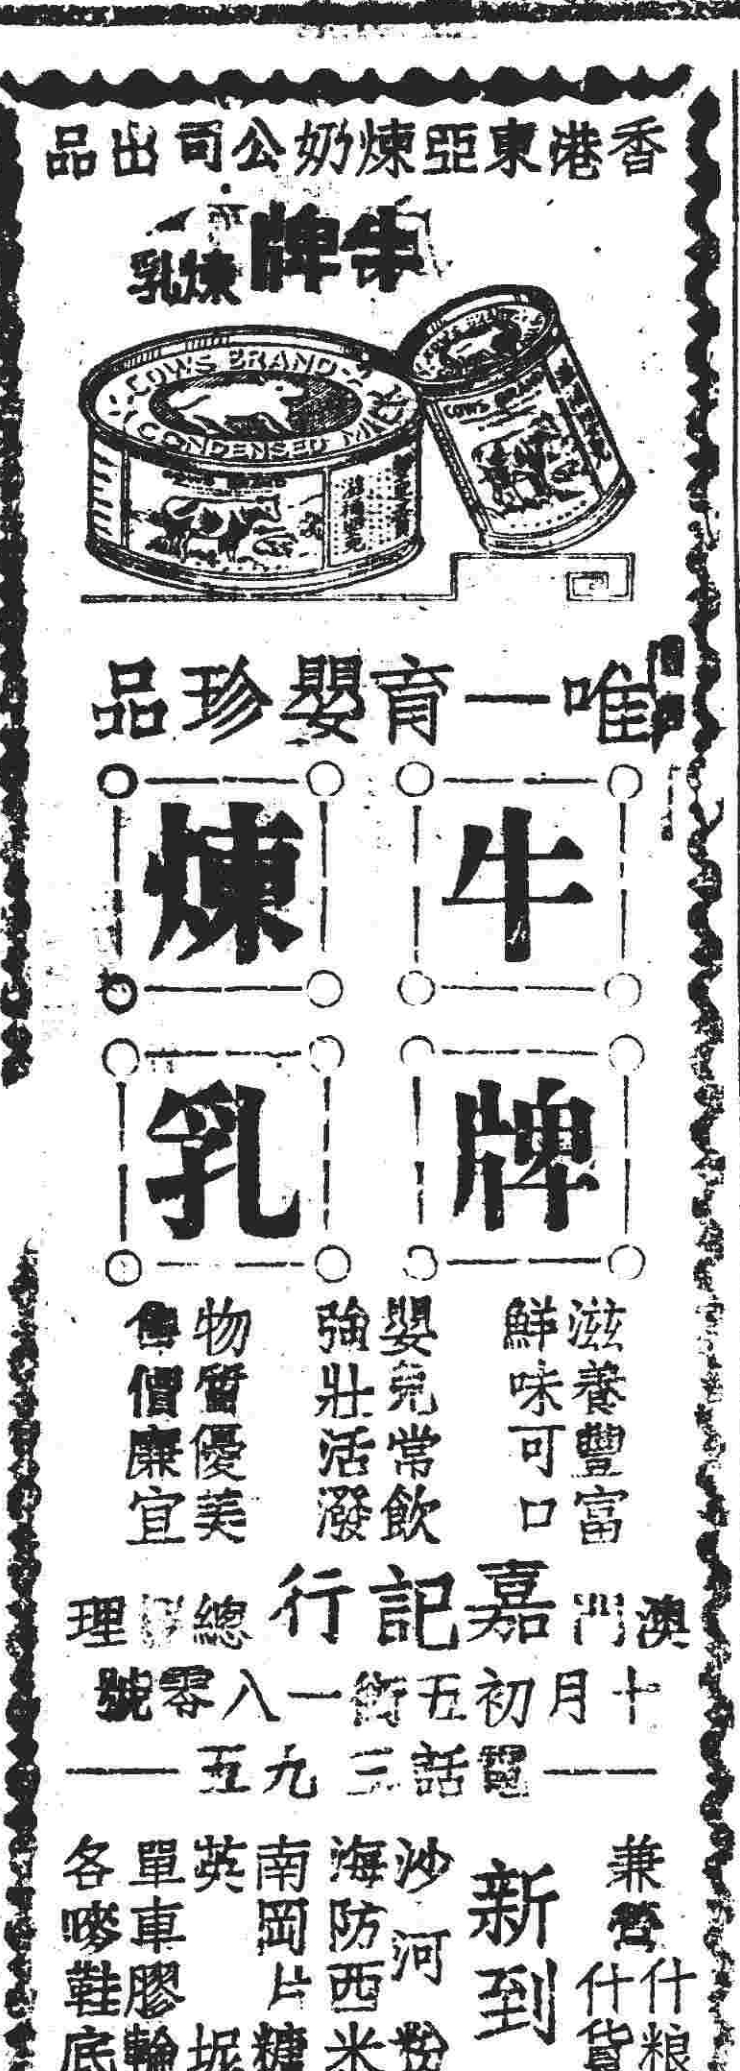 香港東亞煉奶公司出品
牛牌
煉乳
COWS BRAND
CONDENSED MILK
COWS BRAND
唯一育嬰珍品
牛牌
煉乳
滋養豐富
鮮味可口
嬰兒常飲
強壯活潑
物質優美
售價廉宜
澳門嘉記行總理
十月初五街一八零號
電話三九五
兼營
什粮
什貨
新到
沙河粉
海防西米
南岡片糖
英坭
單車膠輪
各嘜鞋底